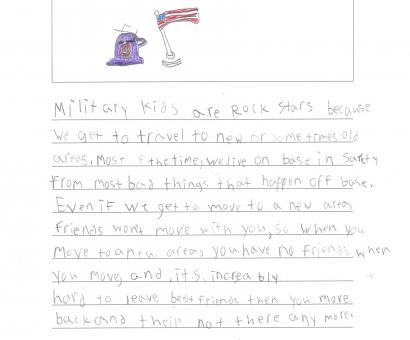 Military kids are Rock stars because
we get to travel to new or some times old
areas. Most f the time, we live on base in Safety
from most bad things that happen off base.
Even if we get to move to a new area,
friends won't move with you, so when you
move to a new area, you have no friends when
you move, and, it,s increably
hard to leave best friends then you move
back and their not there any more.